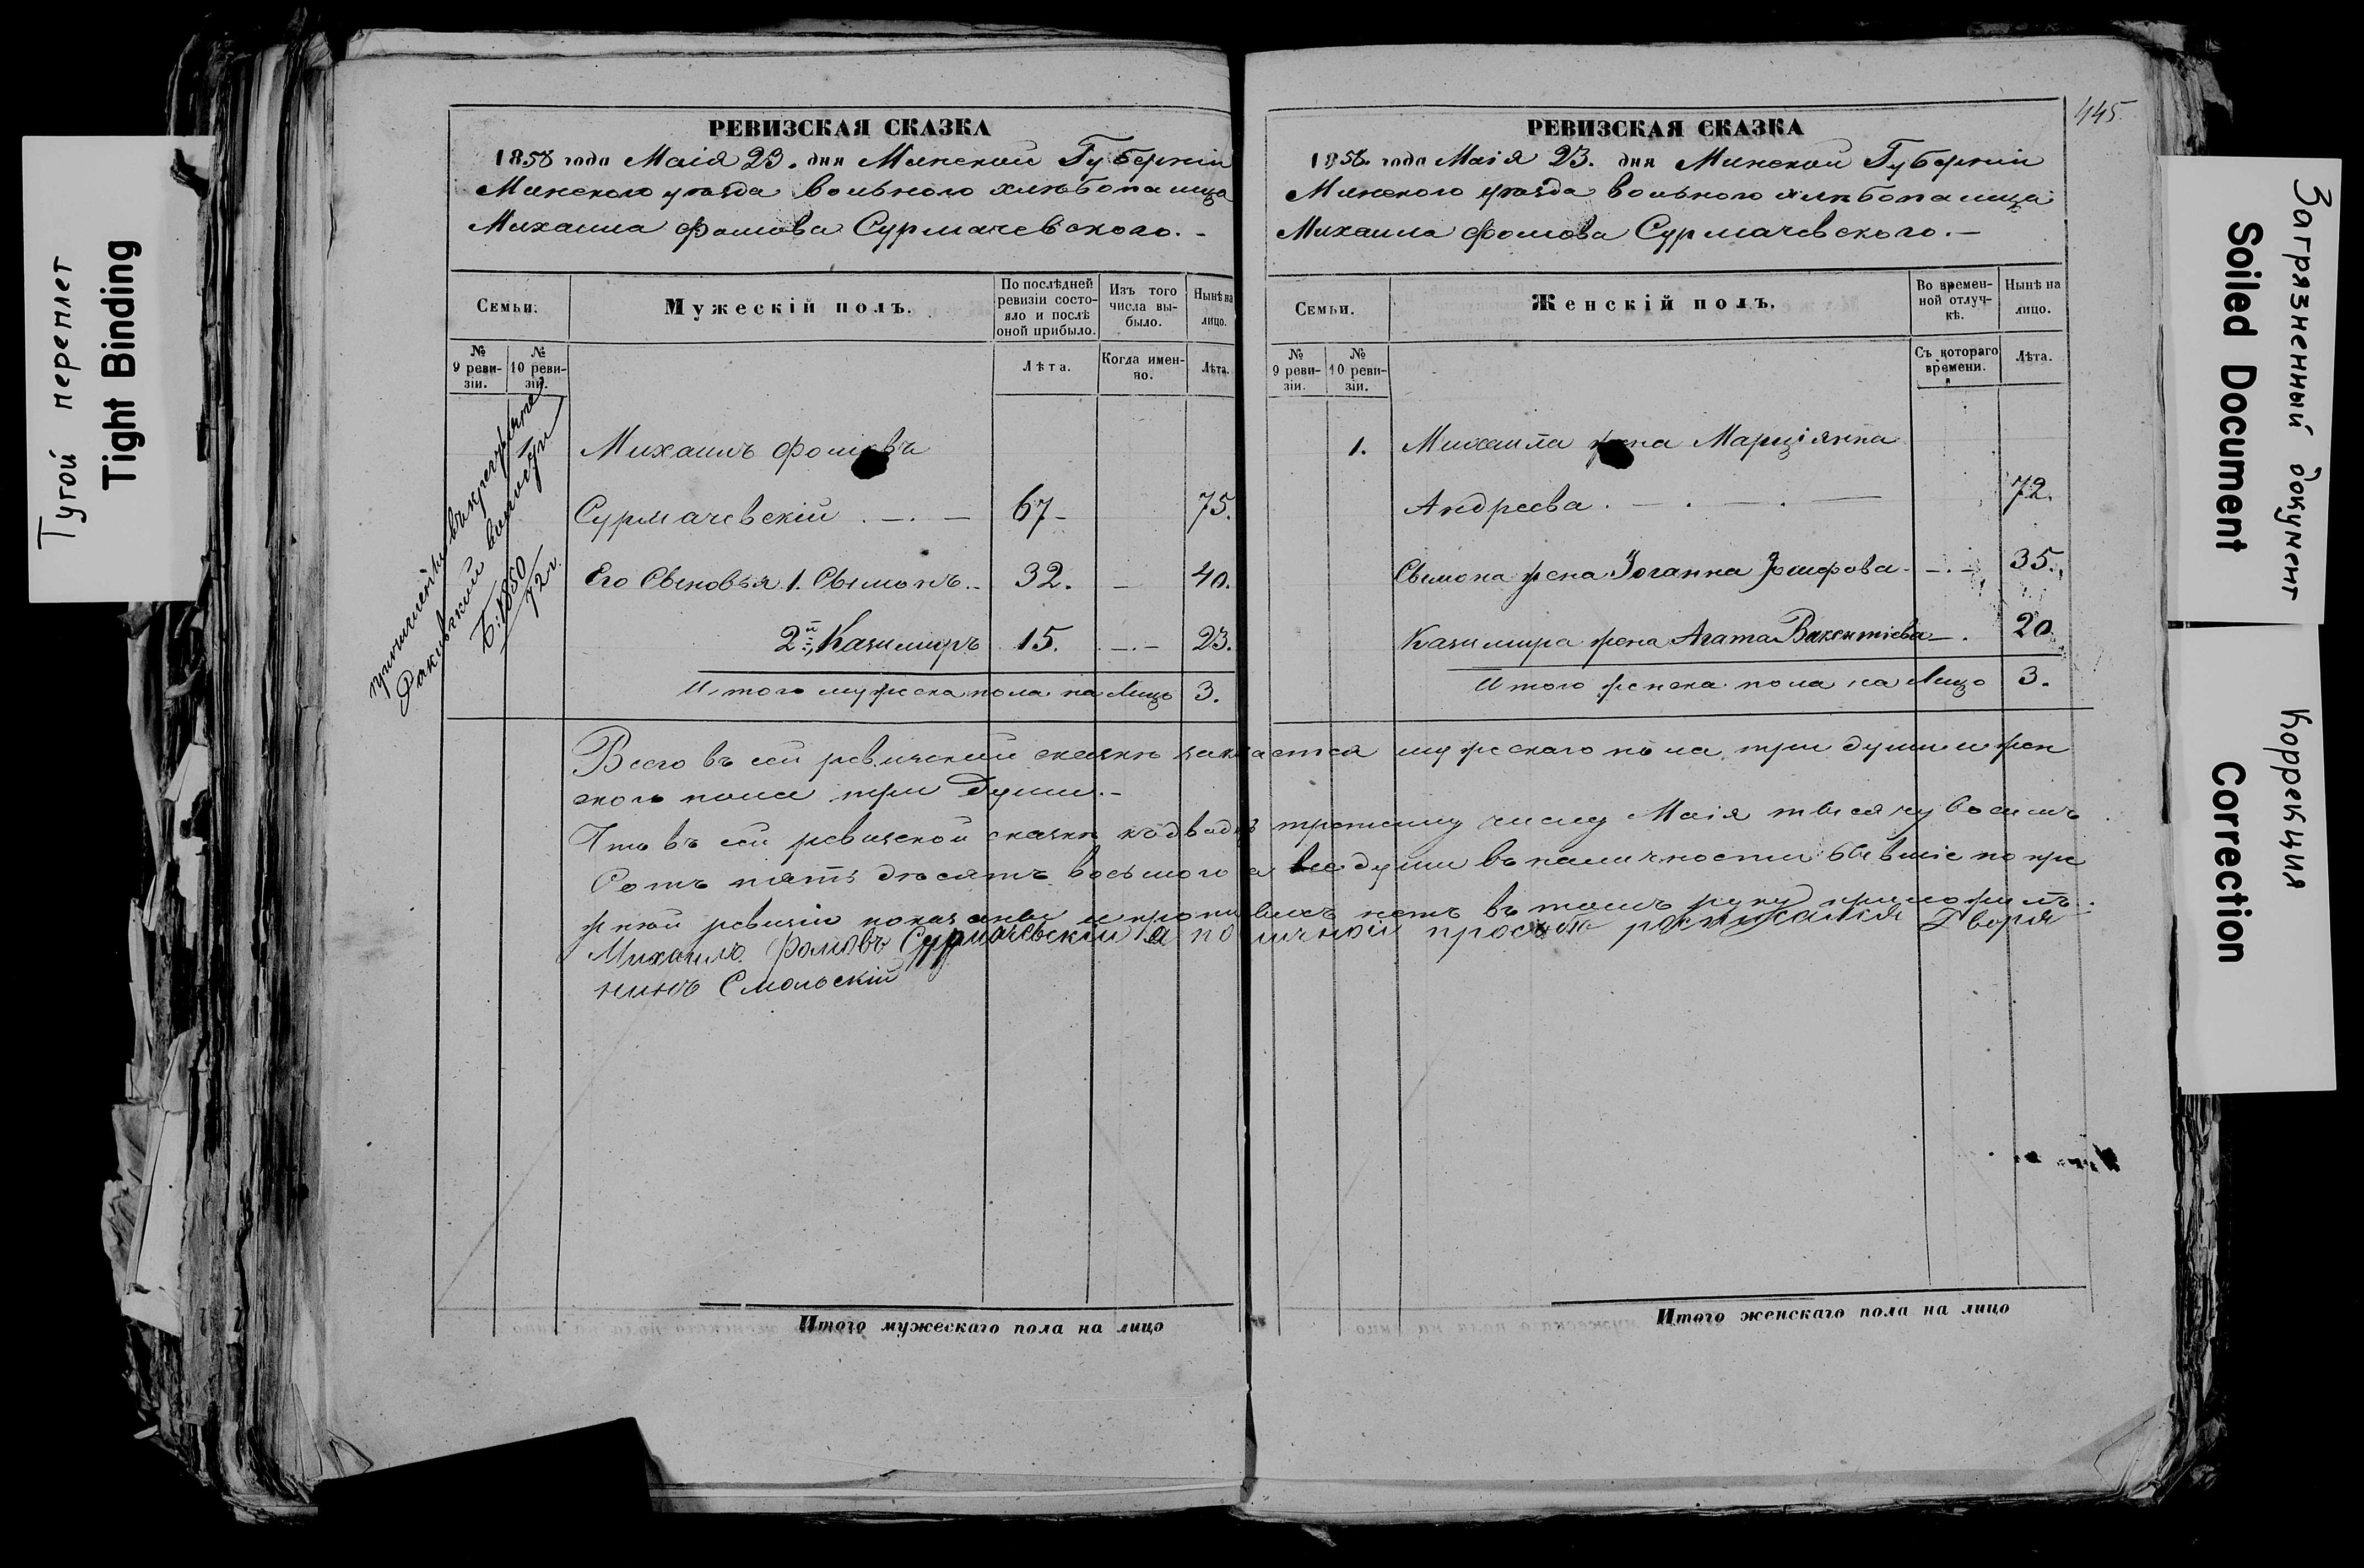 Тугой переплет
Tight Binding
РЕВИЗСКАЯ СКАЗКА
1858 года Маія 23. дня Минской Губерніи
Минского уѣзда вольного хлѣбопашца
Михаила Фомова Сурмачевского. -
Семьи.
Мужескій полъ.
По послѣдней ревизіи состояло и послѣ оной прибыло.
Изъ того числа выбыло.
Нынѣ на лицо.
№ 9 ревизіи.
№ 10 ревизіи.
Лѣта.
Когда именно.
Лѣта.
Михаилъ Фомовъ
Сурмачевскій . —. — 67- 75.
Его Сыновья 1. Сымонъ.- 32. — 40.
2й Казимиръ 15. —.— 23.
Итого мужска пола на Лицо 3.
72 г.
РЕВИЗСКАЯ СКАЗКА
445
1858. года Маія 23. дня Минской Губерніи
Минского уѣзда вольного хлѣбопашца
Михаила Фомова Сурмачевского. —
Семьи.
Женскій полъ.
Во временной отлучкѣ.
Нынѣ на лицо.
№ 9 ревизіи.
№ 10 ревизіи.
Съ котораго времени.
Лѣта.
1. Михаила жена Марціянна
Андреева . — . — . — 72.
Сымона жена Іоганна Іосифова - —.— 35.
Казимира жена Агата Викентіева —. 20
Итого женска пола на Лицо 3.
Всего въ сей ревизской сказкѣ мужскаго пола три души и жен
ского пола три Души.-
Что въ сей ревизской сказкѣ третьему числу Маія тысячу восемь
Сотъ пятъ десятъ восьмого все души въ наличности бывшіе по пре
жней ревизіи показаны и нетъ въ томъ руку приложилъ.
Михаилъ Фомовъ Сурмачевскій а по личной просьбѣ росписался Дворя
нинъ Смольскій
Итого мужескаго пола на лицо
Итого женскаго пола на лицо
Загрязненный документ
Soiled Document
Коррекция
Correction